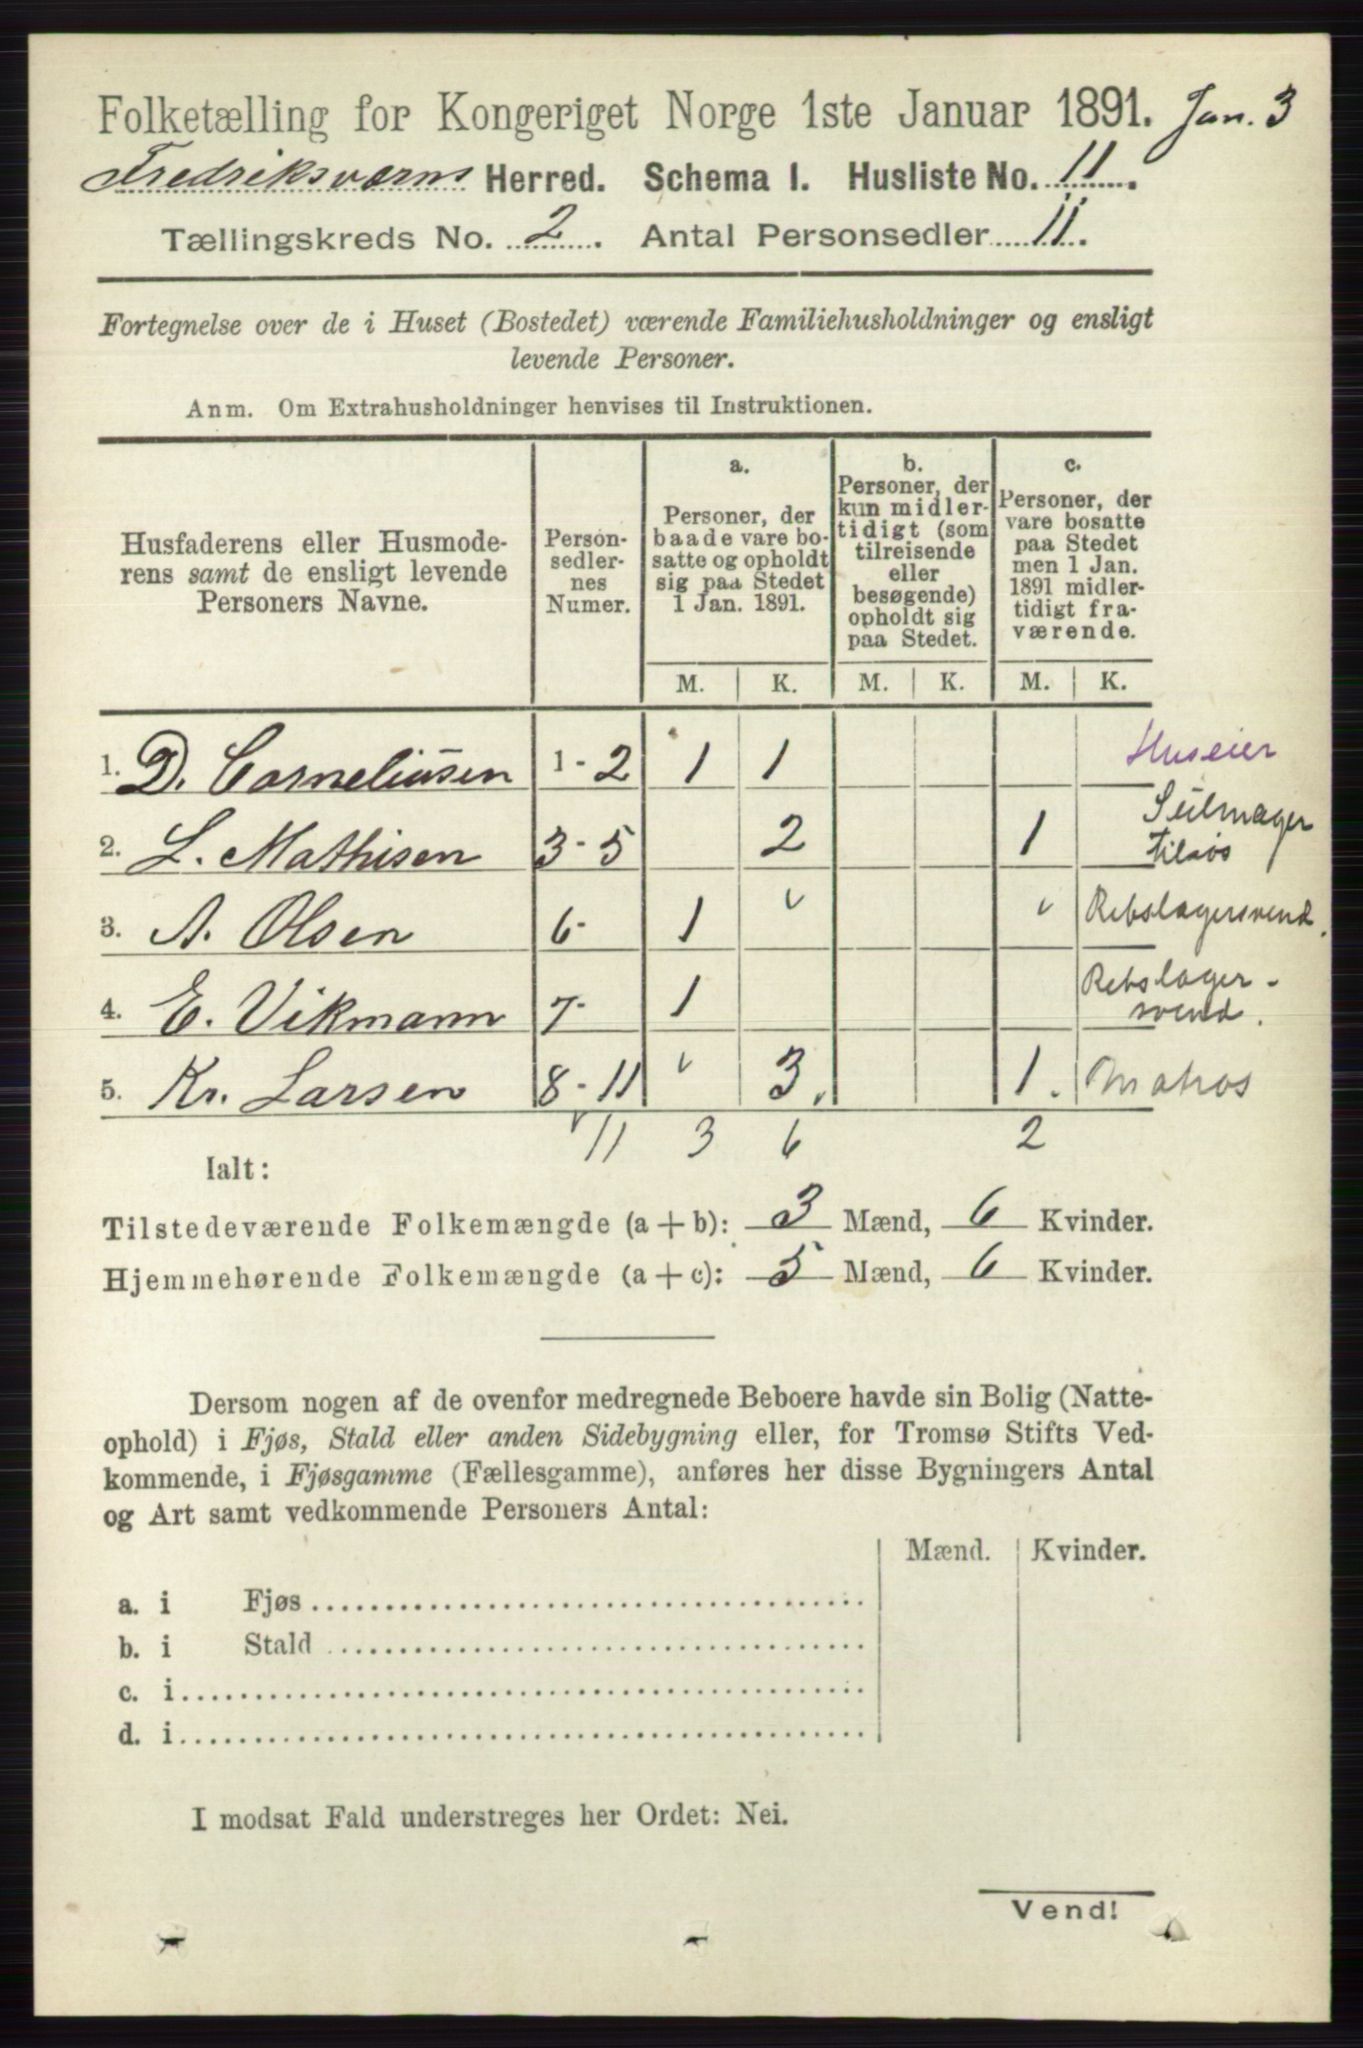 Folketælling for Kongeriget Norge 1ste Januar 1891. Jan. 3
Fredriksværns Herred. Schema I. Husliste No. 11.
Tællingskreds No. 2. Antal Personsedler 11.
Fortegnelse over de i Huset (Bostedet) værende Familiehusholdninger og ensligt
levende Personer.
Anm. Om Extrahusholdninger henvises til Instruktionen.
Husfaderens eller Husmode-
rens samt de ensligt levende
Personers Navne.
Person-
sedler-
nes
Numer.
a.
Personer, der
baade vare bo-
satte og opholdt
sig paa Stedet
1 Jan. 1891.
b.
Personer, der
kun midler-
tidigt (som
tilreisende
eller
besøgende)
opholdt sig
paa Stedet.
c.
Personer, der
vare bosatte
paa Stedet
men 1 Jan.
1891 midler-
tidigt fra-
værende.
M. K. M. K. M. K.
1. D. Corneliusen 1-2 1 1 Huseier
2. L. Mathisen 3-5 2 1 Seilmager
tilsøs
3. A. Olsen 6- 1 Rebslagersvend.
4. E. Vikmann 7- 1 Rebslager-
svend.
5. Kr. Larsen 8-11 3. 1. Matros
11 3 6 2
Ialt:
Tilstedeværende Folkemængde (a + b): 3 Mænd, 6 Kvinder.
Hjemmehørende Folkemængde (a + c): 5 Mænd, 6 Kvinder.
Dersom nogen af de ovenfor medregnede Beboere havde sin Bolig (Natte-
ophold) i Fjøs, Stald eller anden Sidebygning eller, for Tromsø Stifts Ved-
kommende, i Fjøsgamme (Fællesgamme), anføres her disse Bygningers Antal
og Art samt vedkommende Personers Antal:
Mænd. Kvinder.
a. i Fjøs
b. i Stald
c. i
d. i
I modsat Fald understreges her Ordet: Nei.
Vend!